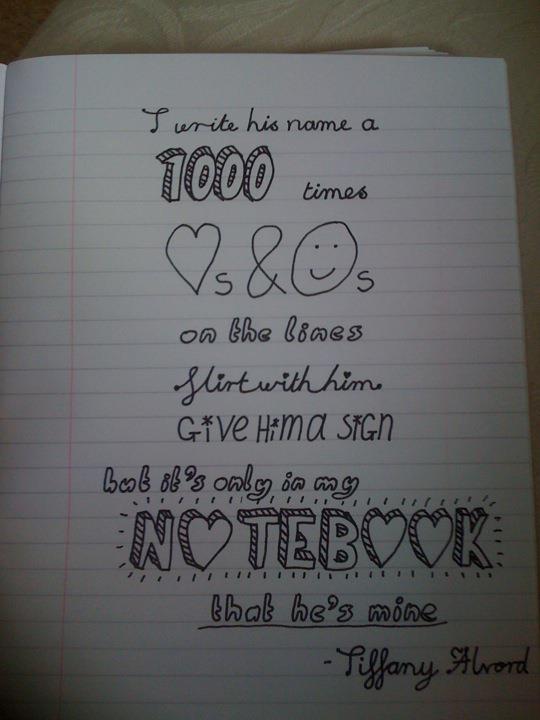 I write his name a
1000 times
♡s & ☺s
on the lines
flirt with him
Give Him a sign
but it's only in my
N♡TEB♡♡K
that he's mine
- Tiffany Alvord